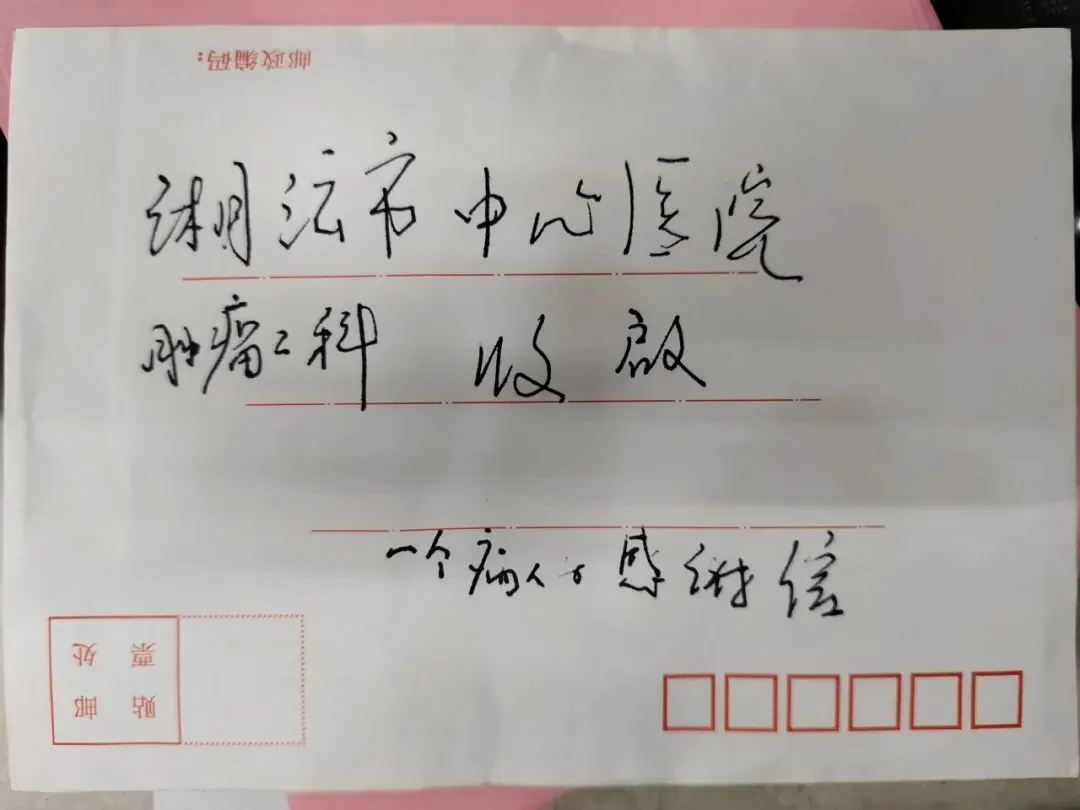 邮政编码：
湘潭市中心医院
肿瘤二科 收启
一个病人的感谢信
贴邮
票处